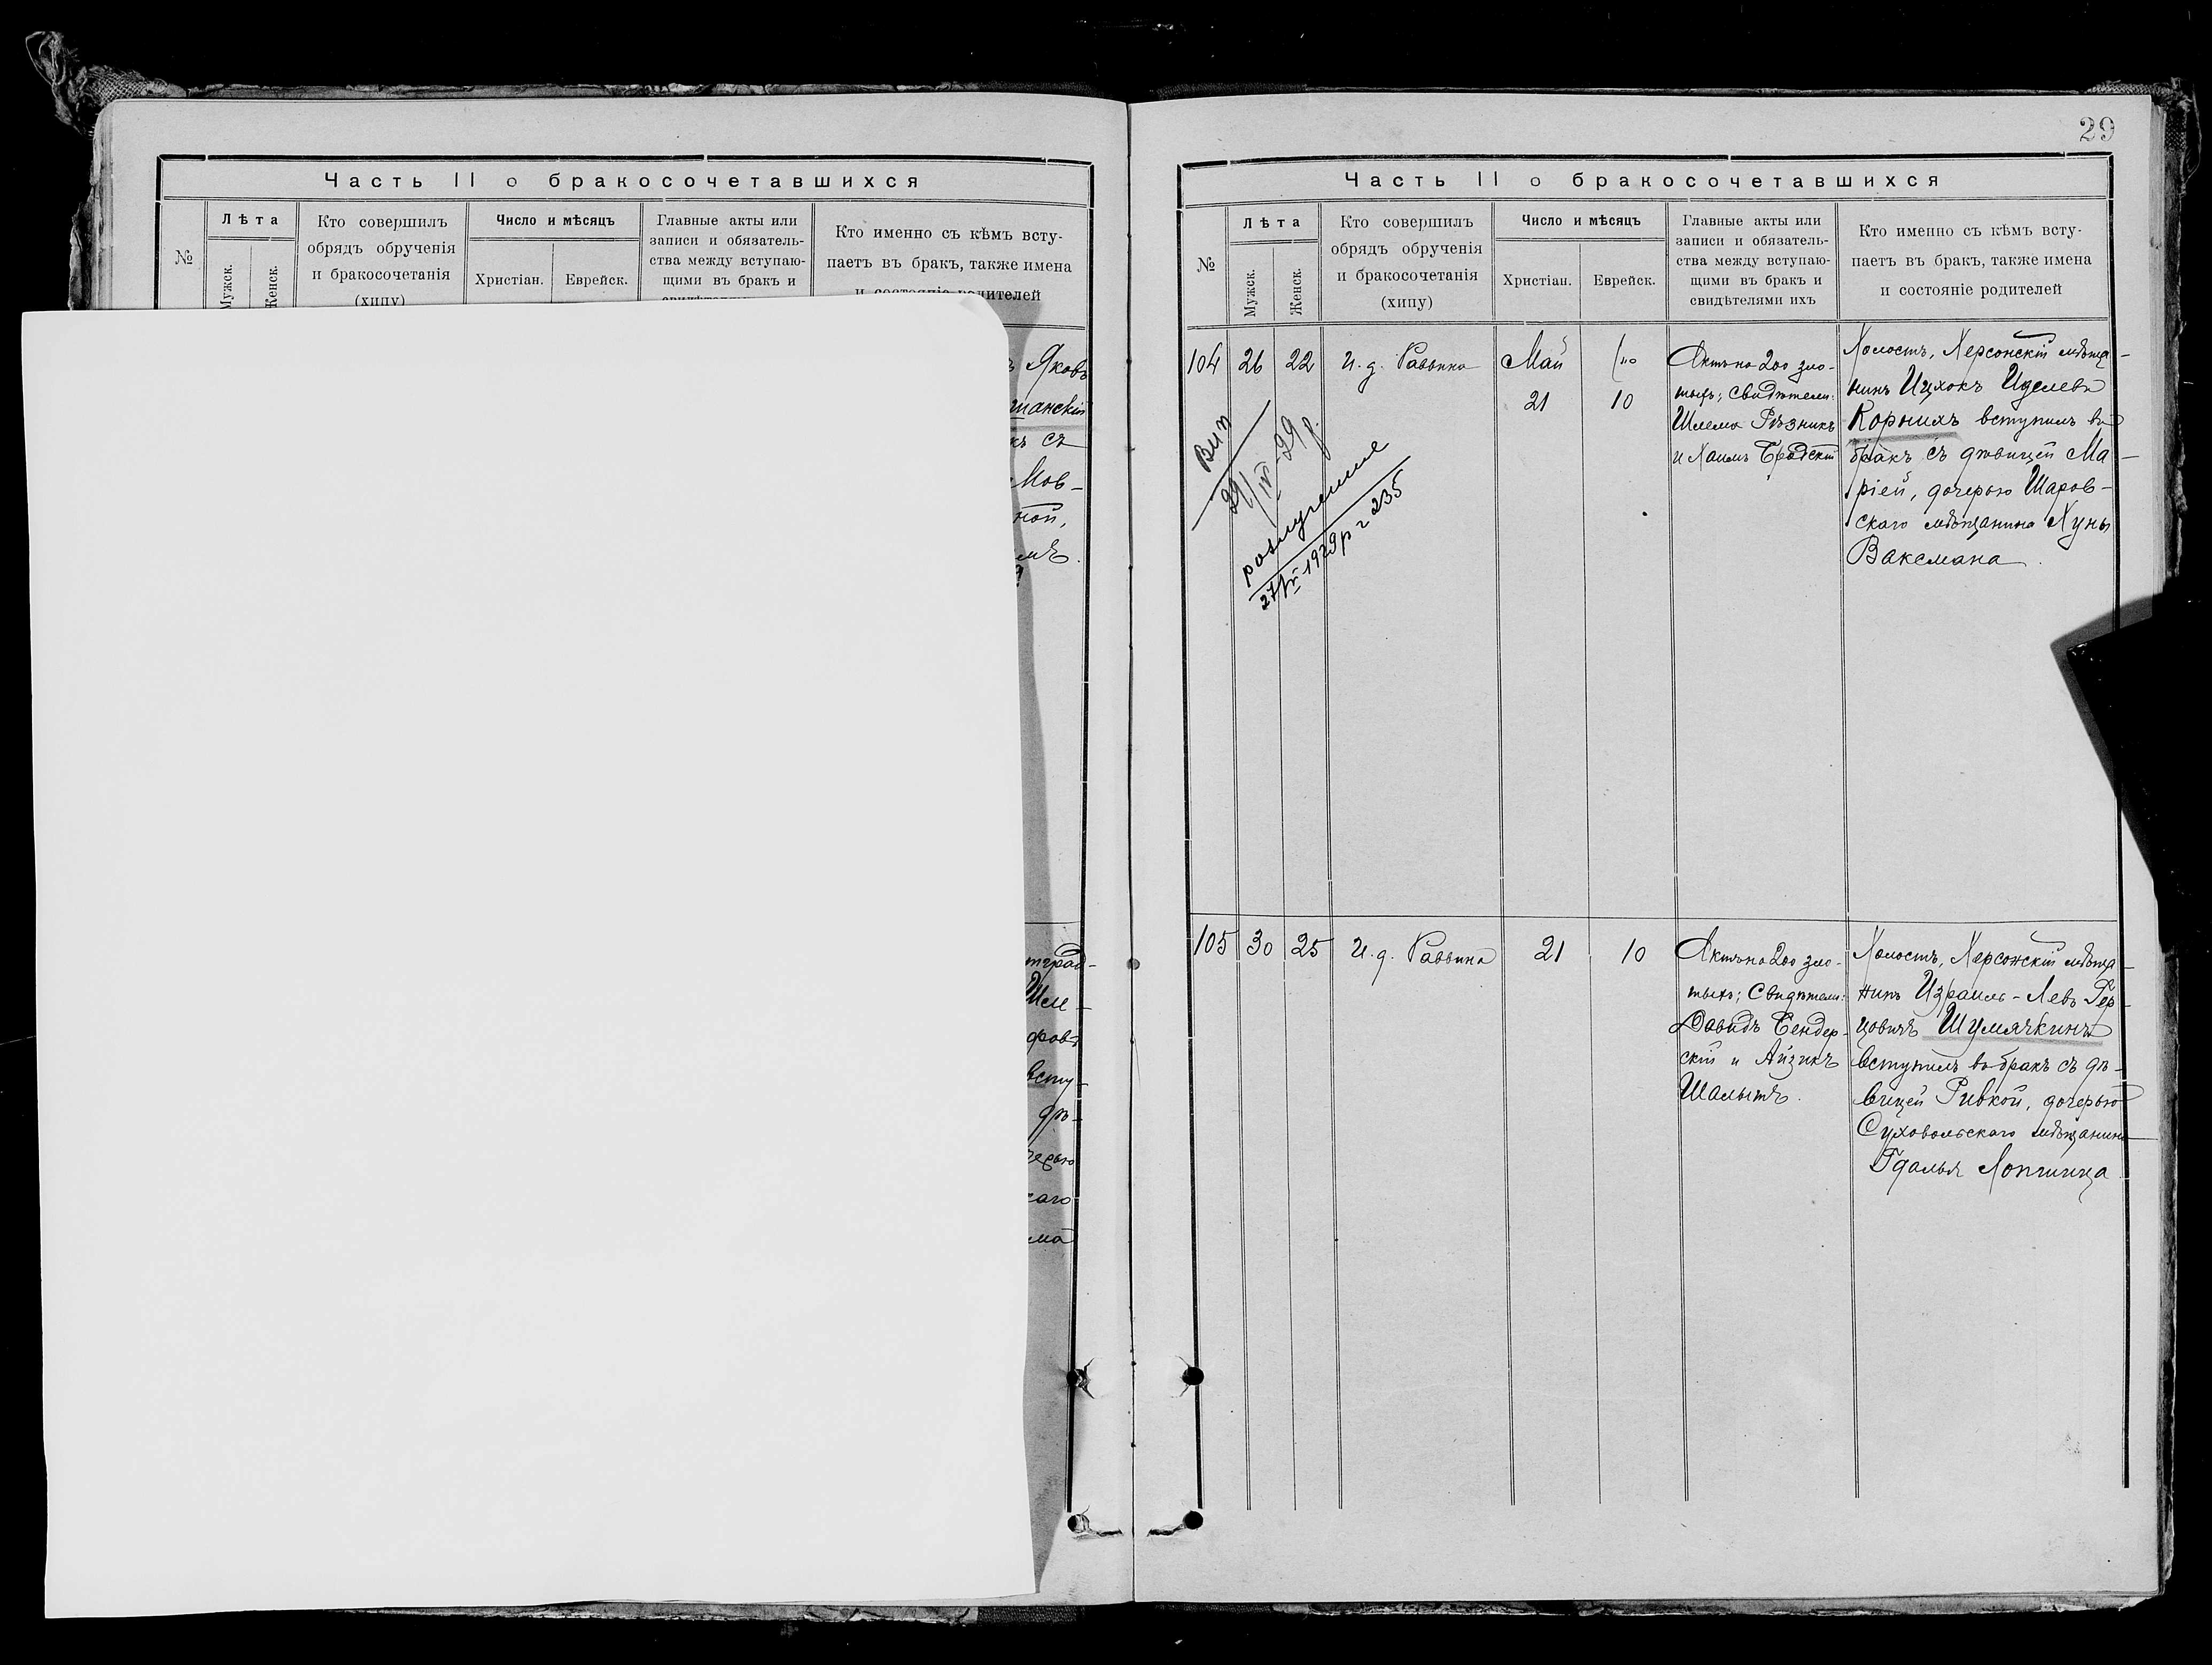 Часть II о бракосочетавшихся
№
Лѣта
Мужск.
Женск.
Кто совершилъ
обрядъ обрученія
и бракосочетанія
(хипу)
Число и мѣсяцъ
Христіан.
Еврейск.
Главные акты или
записи и обязатель-
ства между вступаю-
щими въ бракъ и
Кто именно съ кѣмъ всту-
паетъ въ бракъ, также имена
и состояніе родителей
Яковъ
шанскій
съ
Мов-
ной,
Шле-
всту-
дѣ-
29
Часть II о бракосочетавшихся
№
Лѣта
Мужск.
Женск.
Кто совершилъ
обрядъ обрученія
и бракосочетанія
(хипу)
Число и мѣсяцъ
Христіан.
Еврейск.
Главные акты или
записи и обязатель-
ства между вступаю-
щими въ бракъ и
свидѣтелями ихъ
Кто именно съ кѣмъ всту-
паетъ въ бракъ, также имена
и состояніе родителей
104
26
22
И. д. Раввина
Май
21
10
Актъ на 200 зло-
тыхъ; свидѣтели:
Шлема Рѣзникъ
и Хаимъ Бродскій
Холостъ, Херсонскій мѣща-
нинъ Ицхокъ Иделевъ
Корнихъ вступилъ въ
бракъ съ дѣвицей Ма-
ріей, дочерью Шаров-
скаго мѣщанина Хуны
Ваксмана.
Вип
29/IV-29 р.
розлучение
27/IV 1929 р г 235
105
30
25
И. д. Раввина
21
10
Актъ на 200 зло-
тыхъ; Свидѣтели:
Давидъ Бендер-
скій и Айзикъ
Шалытъ.
Холостъ, Херсонскій мѣща-
нинъ Израиль-Левъ Гер-
цовичъ Шумячкинъ
вступилъ въ бракъ съ дѣ-
вицей Ривкой, дочерью
Суховольскаго мѣщанина
Гдалья Лопшица.